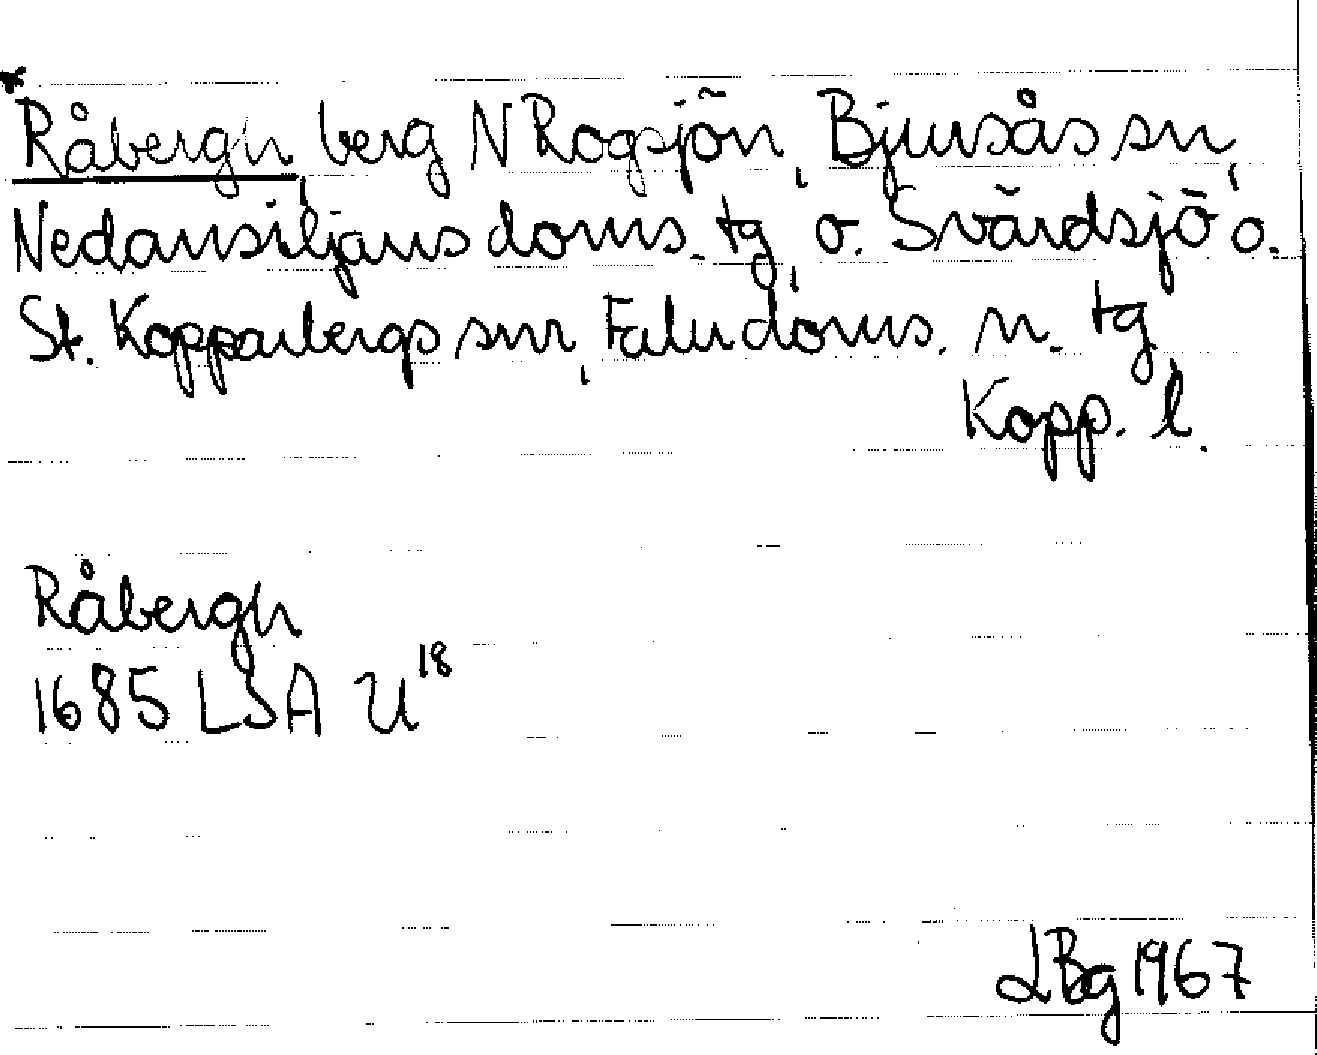 * Råbergh, berg N Rogsjön, Bjursås sn,
Nedansiljans doms. tg, o. Svärdsjö o.
St. Kopparbergs snr, Falu doms. n. tg
Kopp. l.
Råbergh
1685 LSA U18
LBg 1967